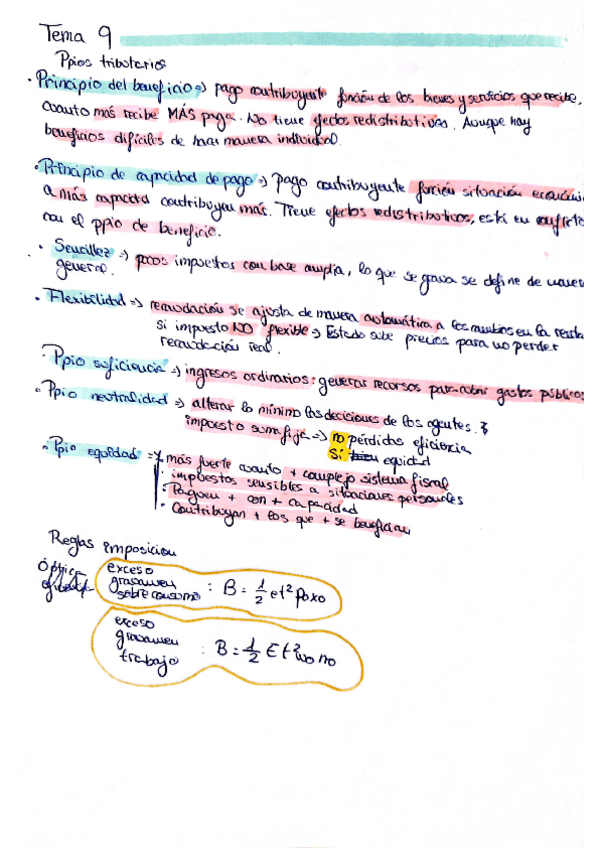 Tema 9
Ppios tributarios
· Principio del beneficio => pago contribuyente función de los bienes y servicios que recibe,
cuanto más recibe MÁS paga. No tiene efectos redistributivos. Aunque hay
beneficios difíciles de hacer manera individual.
· Principio de capacidad de pago => pago contribuyente función situación económi
a más capacidad contribuyen más. Tiene efectos redistributivos, está en conflicto
con el ppio de beneficio.
· Sencillez => pocos impuestos con base amplia, lo que se grava se define de maner
general.
· Flexibilidad => recaudación se ajusta de manera automática a los cambios en la renta
Si impuesto NO flexible => Estado sube precios para no perder
recaudación real.
· Ppio suficiencia => ingresos ordinarios: generar recursos para cubrir gastos públicos
· Ppio neutralidad => alterar lo mínimo las decisiones de los agentes.
impuesto suma fija => no pérdidas eficiencia
Sí bien equidad
· Ppio equidad => más fuerte cuanto + complejo sistema fiscal
· impuestos sensibles a situaciones personales
· Paguen + con + capacidad
· Contribuyan + los que + se benefician
Reglas imposicion
Óptica eficiente
exceso
gravamen
sobre consumo : B = 1/2 e t² p₀x₀
exceso
gravamen
trabajo : B = 1/2 E t² w₀ n₀